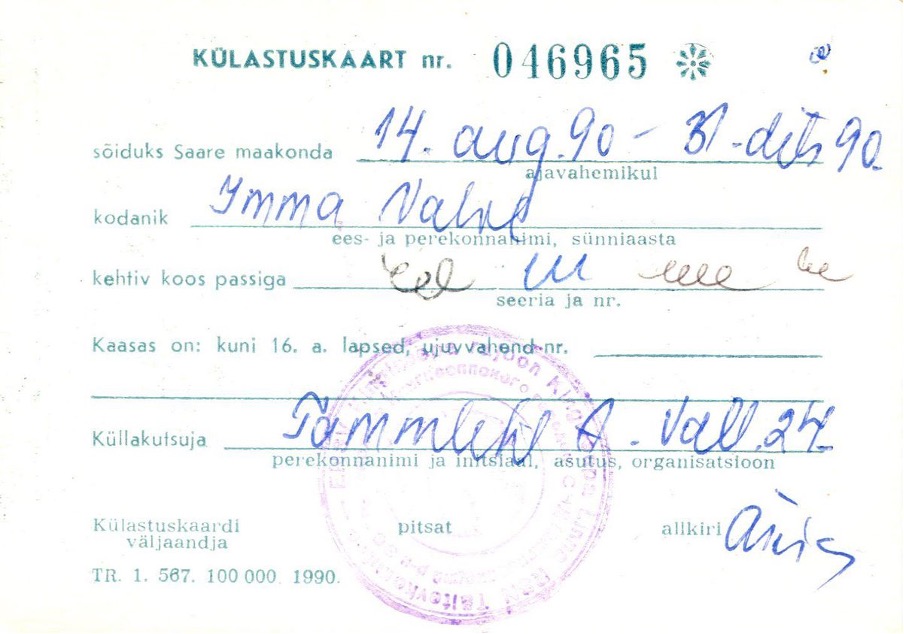 KÜLASTUSKAART nr. 046965
sõiduks Saare maakonda 14. aug. 90 – 31. dets 90.
ajavahemikul
kodanik Imma
ees- ja perekonnanimi, sünniaasta
kehtiv koos passiga
seeria ja nr.
Kaasas on: kuni 16. a. lapsed, ujuvvahend nr.
Küllakutsuja Tammleht A. Vall. 24.
perekonnanimi ja initsiaal, asutus, organisatsioon
Külastuskaardi pitsat allkiri
väljaandja
TR. 1. 567. 100 000. 1990.